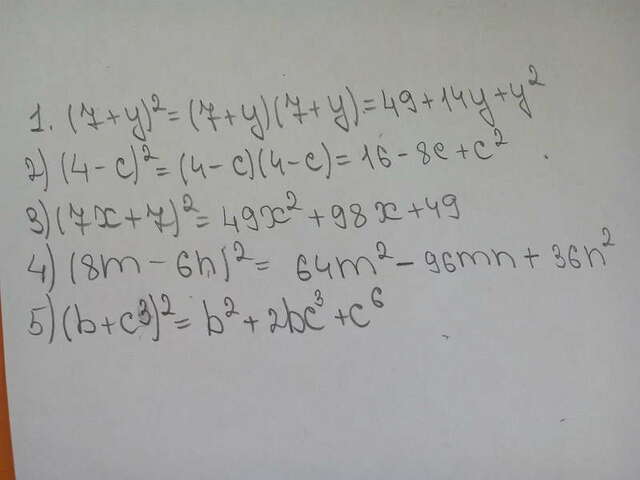 1. (7+y)²=(7+y)(7+y)=49+14y+y²
2) (4-c)²=(4-c)(4-c)=16-8c+c²
3) (7x+7)²=49x²+98x+49
4) (8m-6n)²= 64m²-96mn+36n²
5) (b+c³)²= b²+2bc³+c⁶